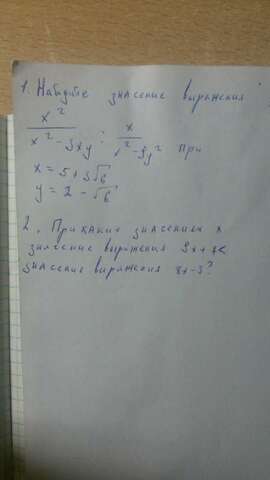 1. Найдите значение выражения
x² / (x² - 9xy) : x / (x² - 9y²) при
x = 5 + 3√6
y = 2 - √6
2. При каких значениях x
значение выражения 9x+7<
значение выражения 8x-3?